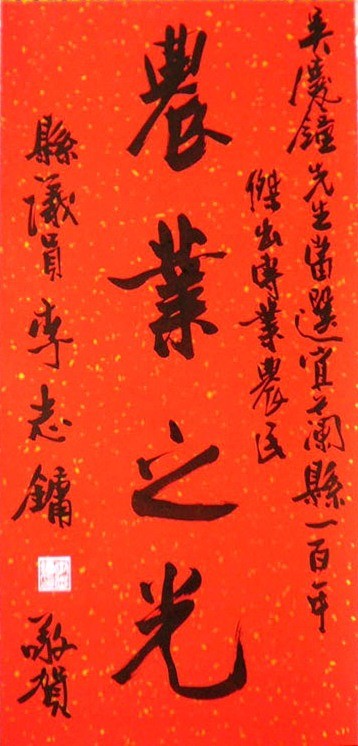 吳慶鐘先生當選宜蘭縣一百年
傑出專業農民
農業之光
縣議員李志鏞 敬賀